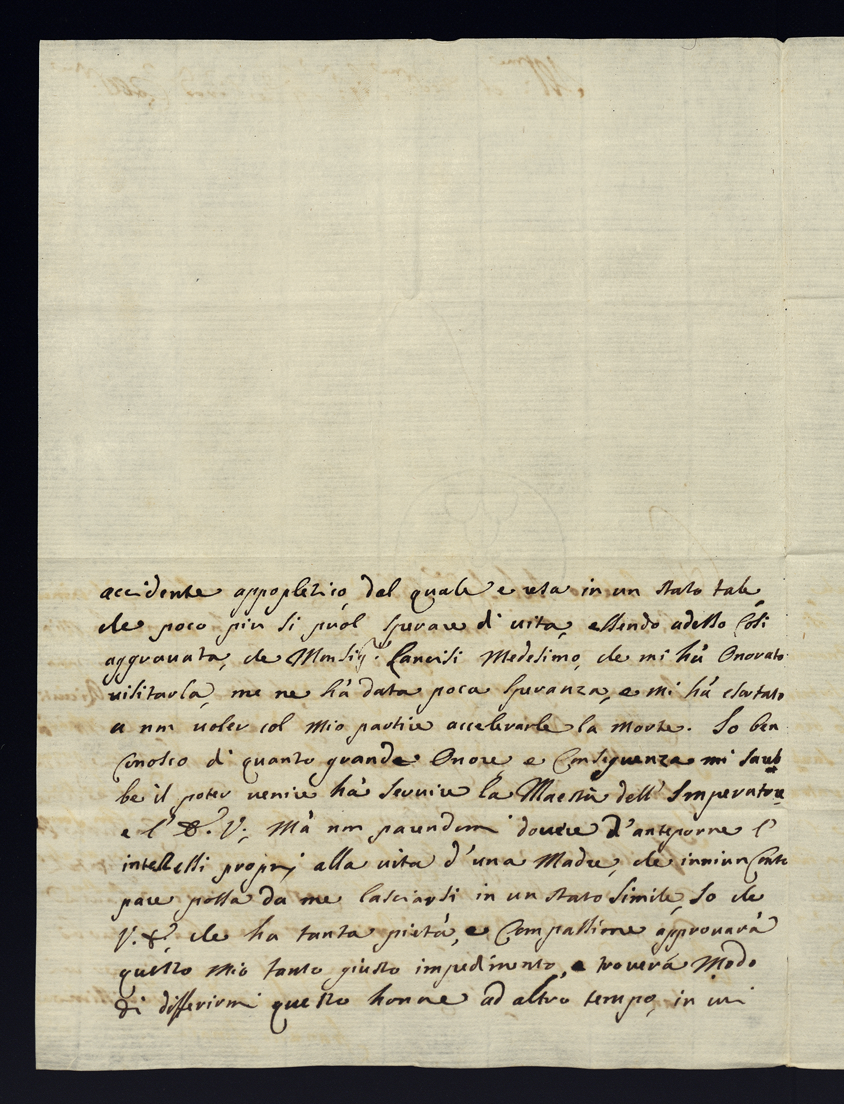 accidente appopletico, dal quale e resa in un stato tale,
che poco piu si puol sperare di vita, essendo adesso così
aggravata, che Monsig.r Lancisi Medesimo, che mi hà Onorato
visitarla, me ne hà data poca speranza, e mi hà esortato
a nm voler col mio partire accelerarle la morte. Io ben
Conosco di quanto grande Onore e Conseguenza mi sareb
be il poter venire hà servire la Maestà dell' Imperatore
e l' V. Mà nm parendomi dovere d'anteporre l'
interessi proprij alla vita d'una Madre, che in niun Conto
pare possa da me lasciarsi in un stato simile, So che
V. che ha tanta pietà, e Compassione approvarà
questo mio tanto giusto impedimento, e troverà Modo
di differirmi questo honore ad altro tempo, in cui